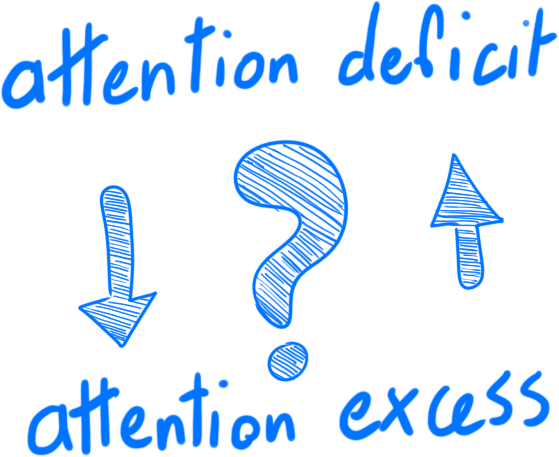 attention deficit
?
attention excess